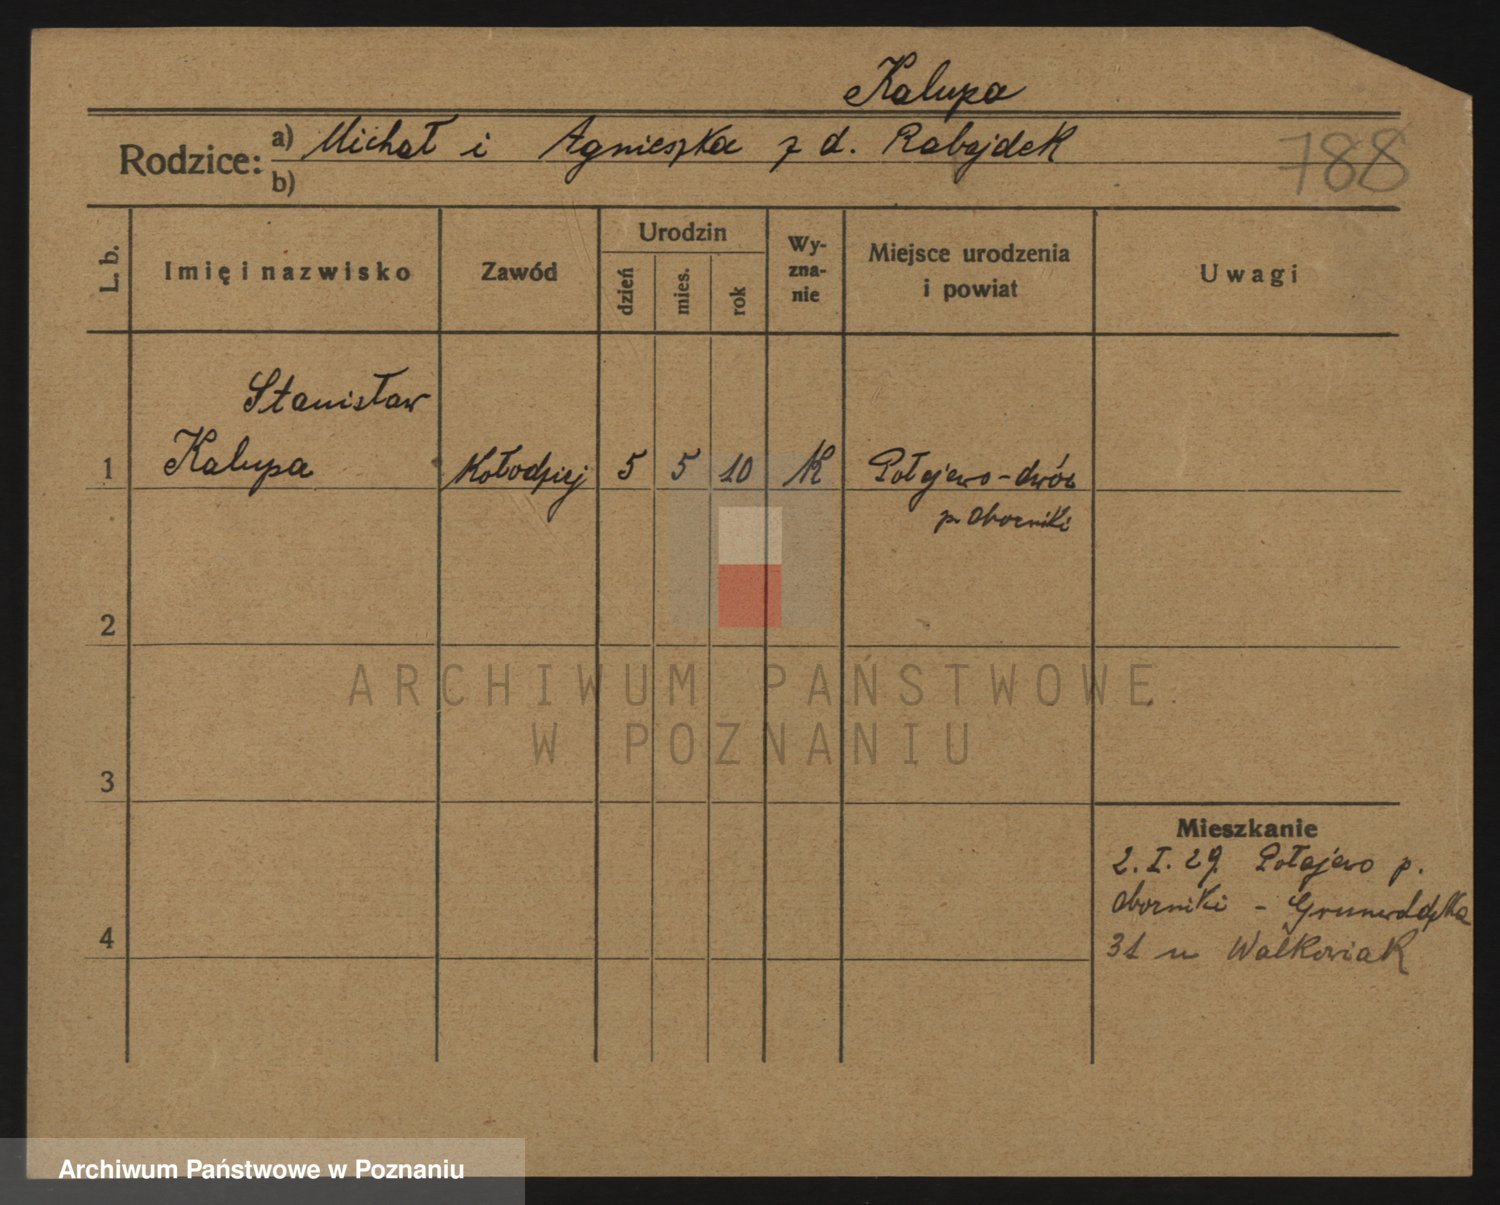 Kalupa
Rodzice: a) Michał i Agnieszka z d. Rabajdek
b)
788
L. b.
Imię i nazwisko
Zawód
Urodzin
dzień
mies.
rok
Wy-
zna-
nie
Miejsce urodzenia
i powiat
Uwagi
Stanisław
1 Kalupa Kołodziej 5 5 10 K Połajewo-dwór
p. Oborniki
2
3
4
Mieszkanie
2. I. 29. Połajewo p.
Oborniki -
31 u Walkowiak
ARCHIWUM PAŃSTWOWE
W POZNANIU
Archiwum Państwowe w Poznaniu